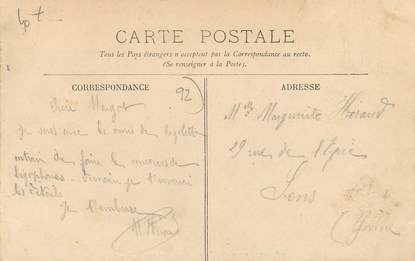 Lot
CARTE POSTALE
Tous les Pays étrangers n'acceptent pas la Correspondance au recto.
(Se renseigner à la Poste).
CORRESPONDANCE
ADRESSE
92
Chère Margot
Je suis avec les amis de
entrain de faire le
demain je t'enverrai
les détails
Je t'embrasse
Melle Marguerite
29 rue de l'Epée
Sens
Yonne